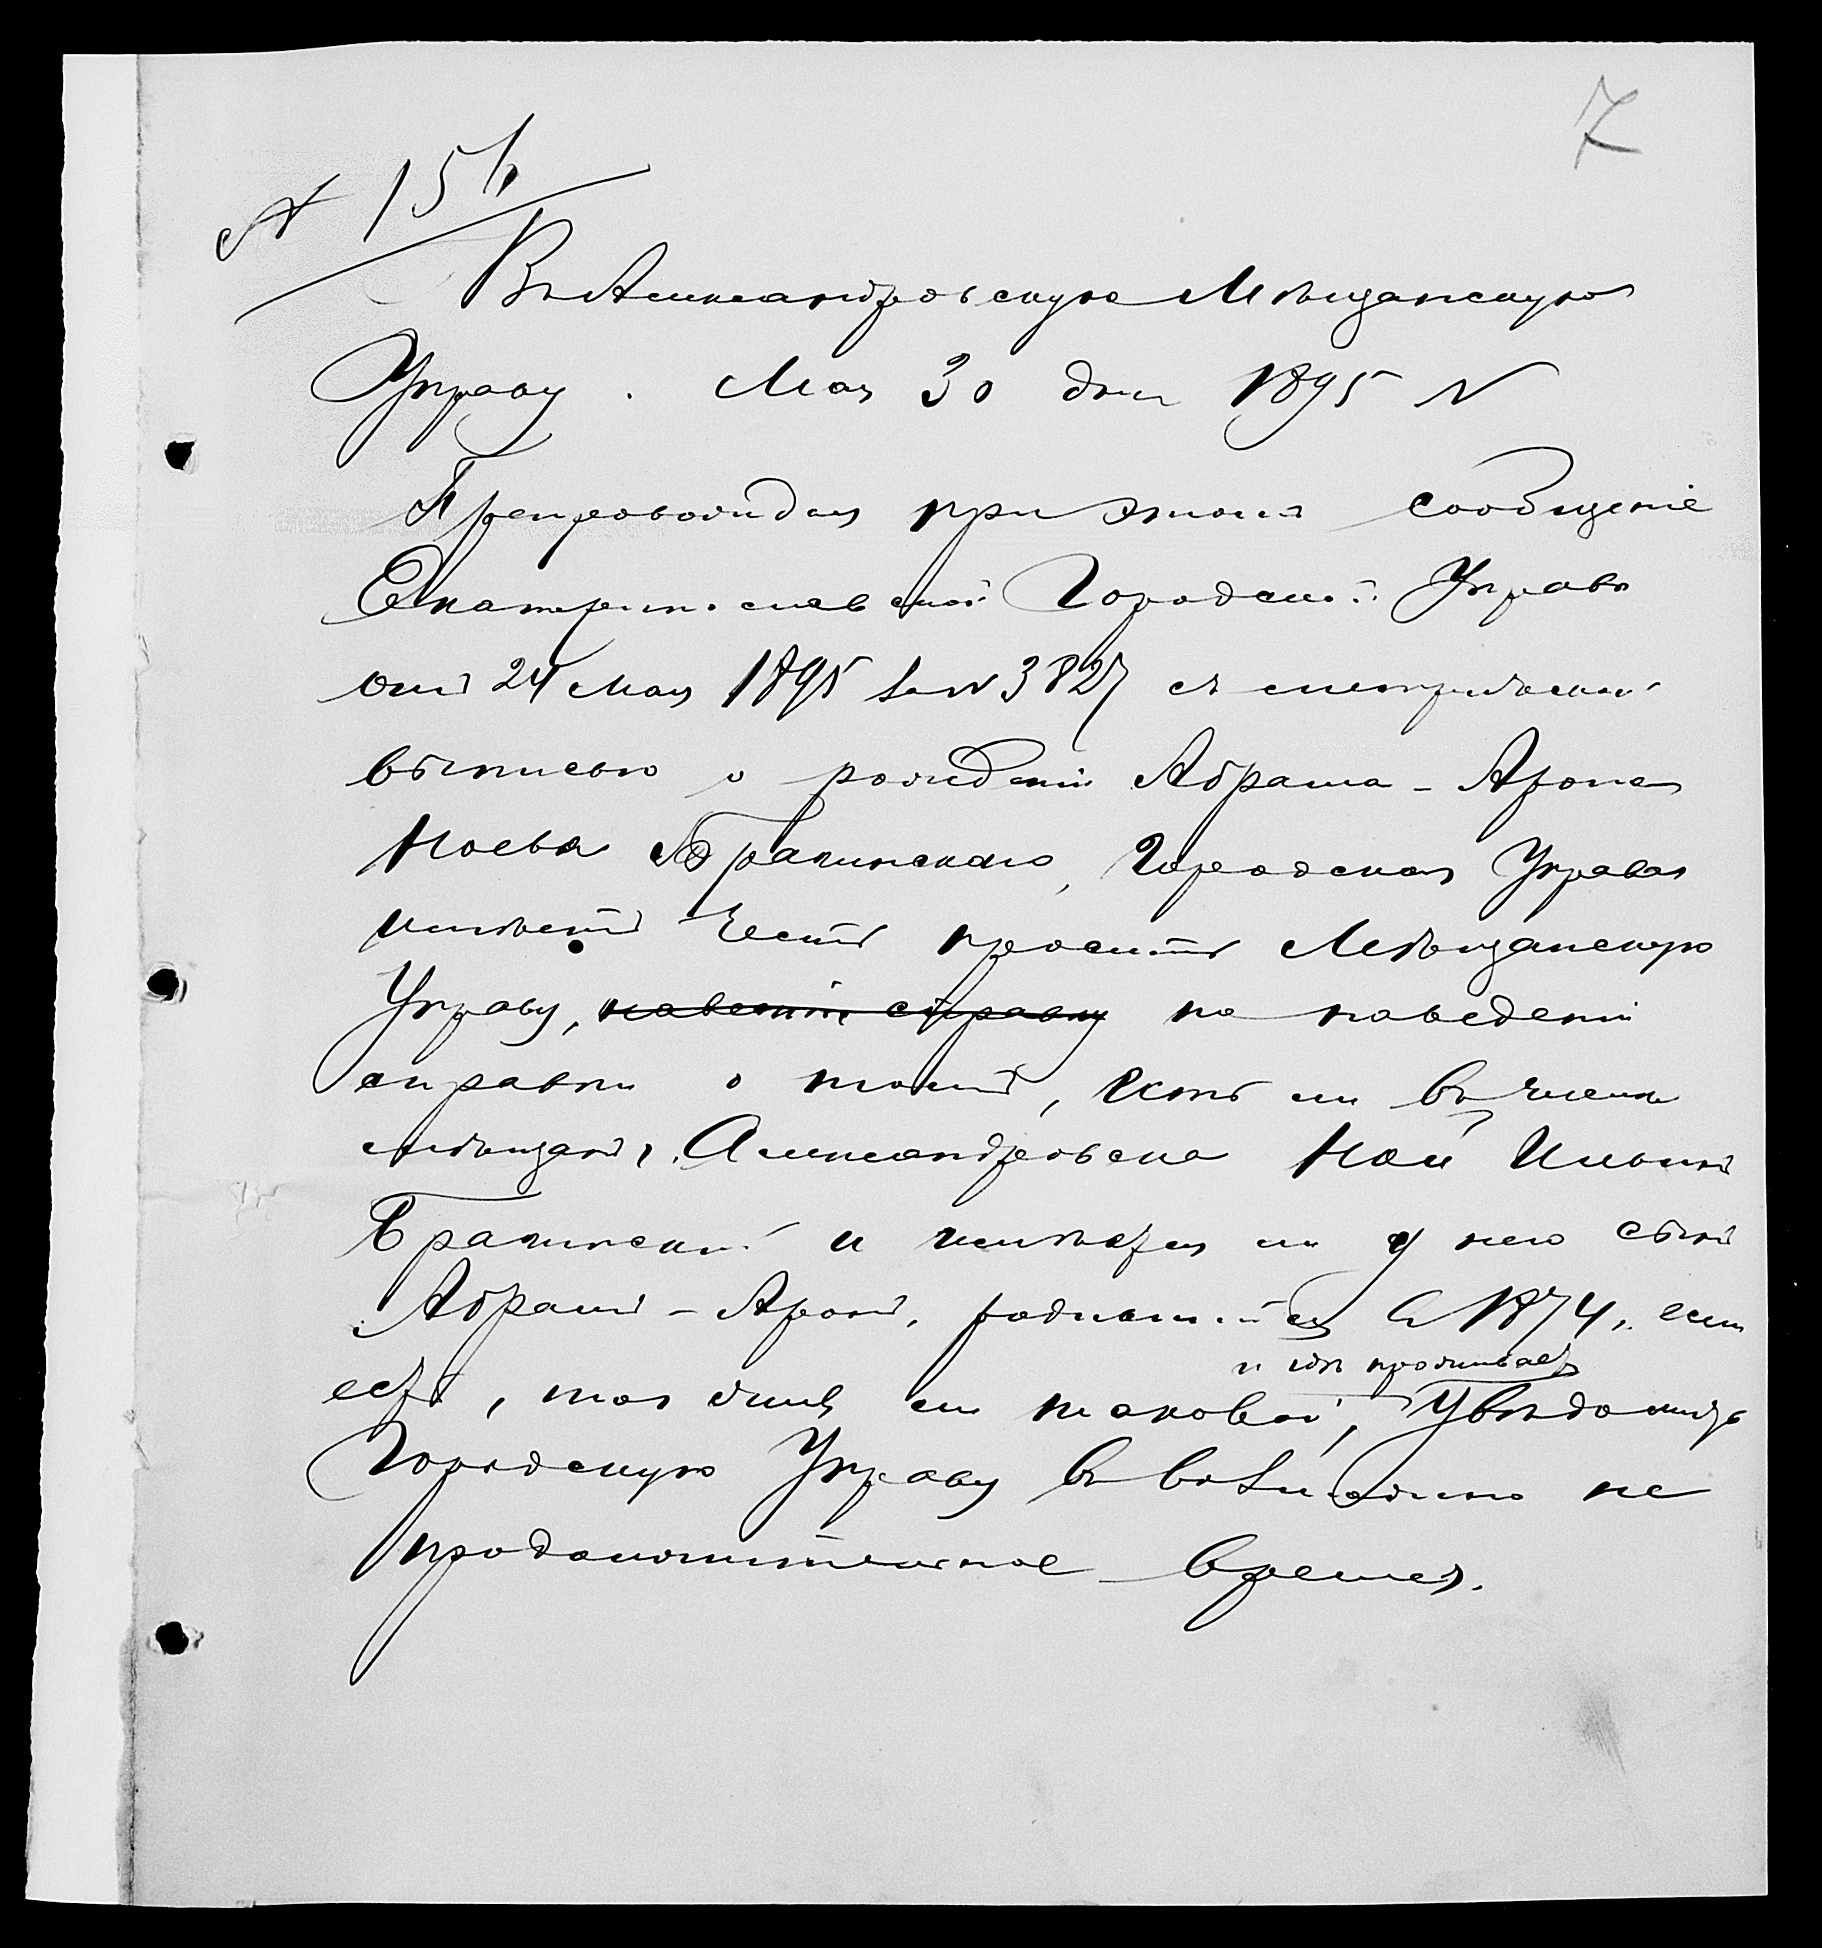 7
№ 156
Въ Александровскую Мѣщанскую
Управу. Мая 30 дня 1895 №
Препровождая при этомъ сообщеніе
Екатеринославской Городской Управы
отъ 24 Мая 1895 за № 3827 съ метрической
выписью о рожденіи Абрама-Арона
Ноева Брагинскаго, Городская Управа
имѣетъ честь просить Мѣщанскую
Управу, навести справку по наведеніи
справки о томъ, есть ли въ числѣ
мѣщанъ г. Александровска Ной
и имѣется ли у него сынъ
Абрамъ-Аронъ, родившійся въ 1874 г. если
и гдѣ проживаетъ
есть, то живъ ли таковой, увѣдомить
Городскую Управу въ возможно не
продолжительное время.